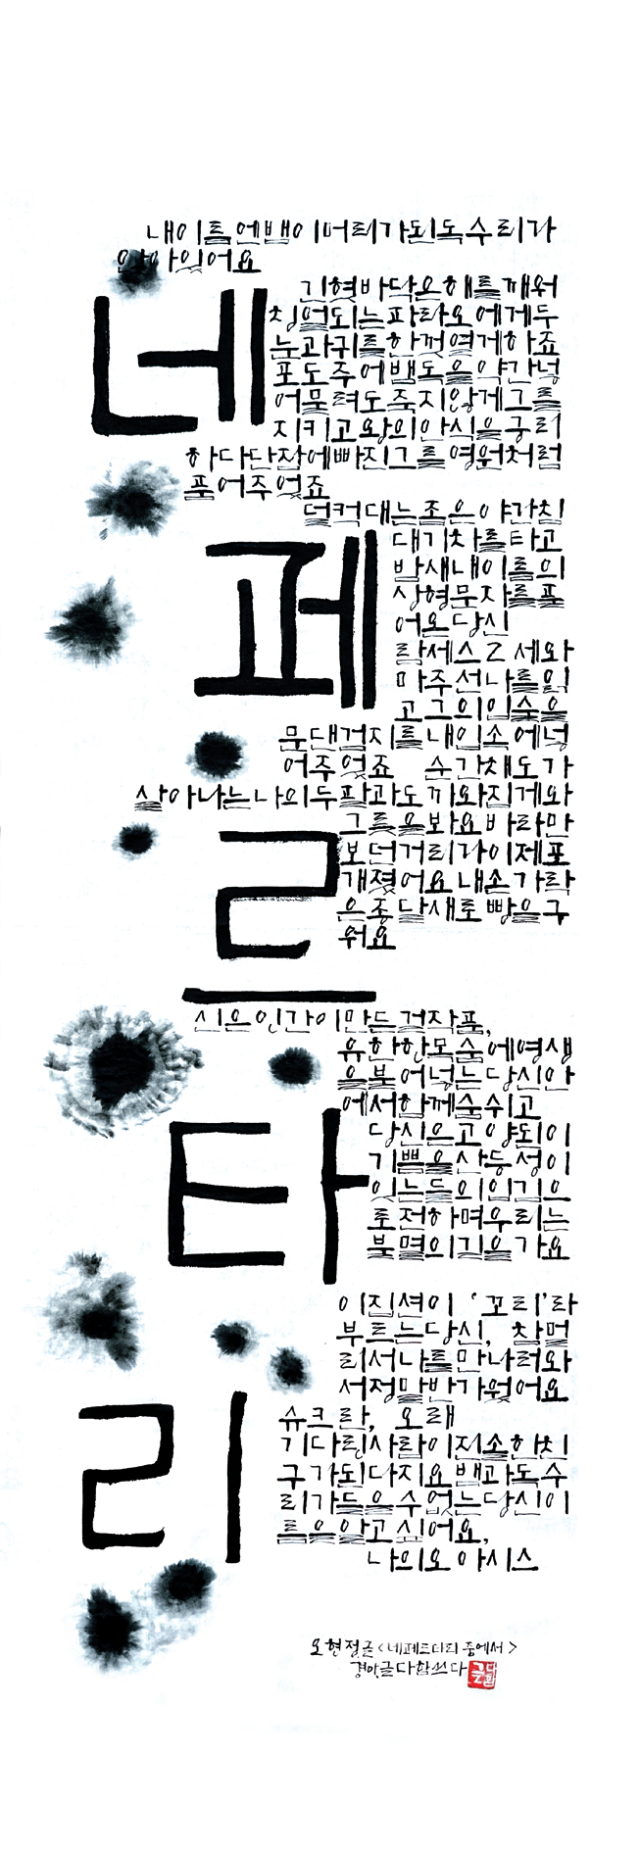 내 이름엔 뱀이 머리가 된 독수리가
앉아있어요
네페르타리
긴 혓바닥은 해를 깨워
칭얼되는 파라오에게 두
눈과 귀를 한껏 열게 하죠
포도주에 뱀독을 약간 넣
어 물려도 죽지 않게 그를
지키고 왕의 안식을 궁리
하다 단잠에 빠진 그를 영원처럼
품어주었죠
덜컥대는 좁은 야간침
대기차를 타고
밤새 내 이름의
상형문자를 풀
어온 당신
람세스 2세와
마주 선 나를 읽
고 그의 입술을
문댄 검지를 내 입속에 넣
어주었죠 순간 채도가
살아나는 나의 두 팔과 도끼와 집게와
그릇을 봐요 바라만
보던 거리가 이제 포
개졌어요 내 손가락
은 종달새로 빵을 구
워요
신은 인간이 만든 걸작품,
유한한 목숨에 영생
을 불어넣는 당신 안
에서 함께 숨 쉬고
당신은 고양된 이
기쁨을 산 등성이
잇는 들의 입김으
로 전하며 우리는
불멸의 길을 가요
이집션이 '꼬리'라
부르는 당신, 참 멀
리서 나를 만나러 와
서 정말 반가웠어요
슈크란, 오래
기다린 사람이 전솔한 친
구가 된다지요 뱀과 독수
리가 들을 수 없는 당신 이
름을 알고 싶어요,
나의 오아시스
오현정 글 <네페르타리 중에서>
경아 글다함 쓰다